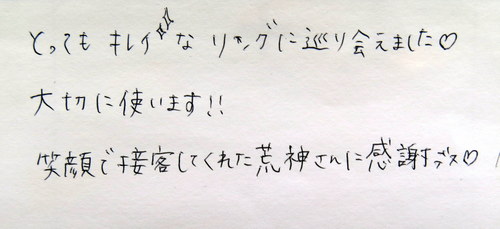 とってもキレイな リングに巡り会えました♡
大切に使います!!
笑顔で接客してくれた荒神さんに感謝です♡